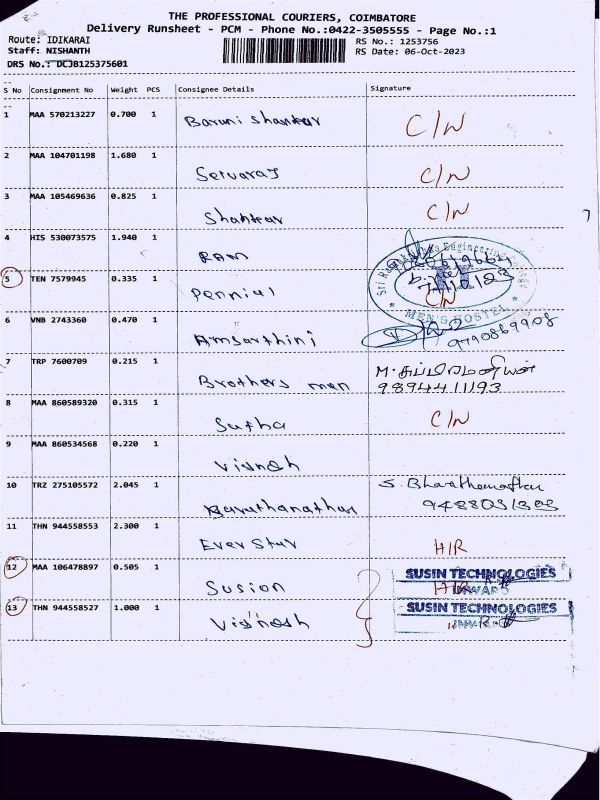 THE PROFESSIONAL COURIERS, COIMBATORE
Delivery Runsheet - PCM - Phone No.:0422-3505555 - Page No.:1
Route: IDIKARAI
RS No.: 1253756
Staff: NISHANTH
RS Date: 06-Oct-2023
DRS No.: DCJB125375601
S No Consignment No Weight PCS Consignee Details Signature
1 MAA 570213227 0.700 1 Barani Shankar C/N
2 MAA 104701198 1.680 1 Selvaraj C/N
3 MAA 105469636 0.825 1 Shankar C/N
4 HIS 530073575 1.940 1 RAM
5 TEN 7579945 0.335 1 Pennial C/N
Engineering College
MEN'S HOSTEL
6 VNB 2743360 0.470 1 Amsarthini 9790869908
7 TRP 7600709 0.215 1 Brothers men M. சுப்பிரமணியன்
9894411193
8 MAA 860589320 0.315 1 Sutha C/N
9 MAA 860534568 0.220 1 Vignesh
10 TRZ 275105572 2.045 1 S.
9488031303
11 THN 944558553 2.300 1 Ever Star H/R
12 MAA 106478897 0.505 1 Susion SUSIN TECHNOLOGIES
13 THN 944558527 1.000 1 Vignesh SUSIN TECHNOLOGIES